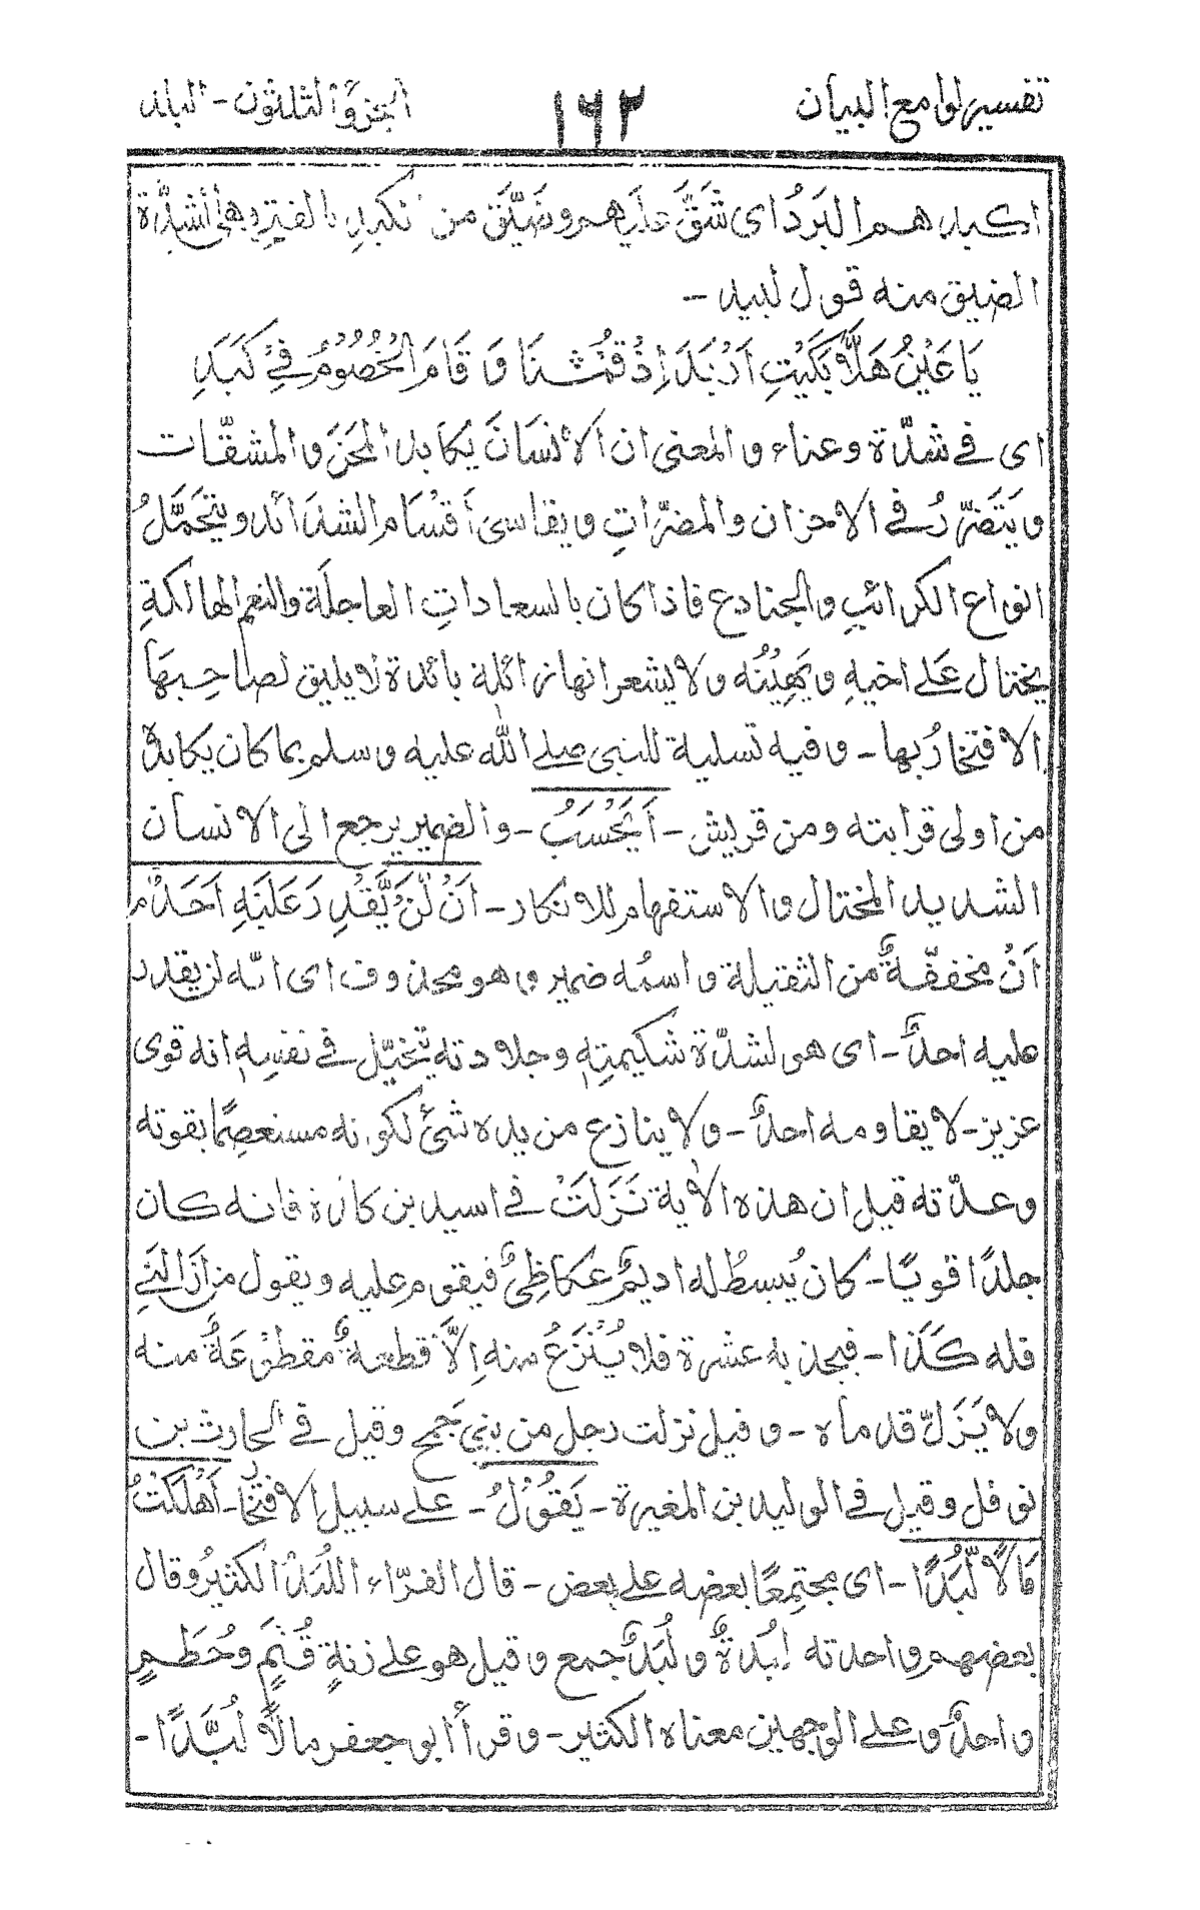 تفسير لوامع البيان ١٦٢ الجزؤ الثلثون - البلد
اكبد هم البَردُ اى شَقَّ عليهم وضَيَّق من تكبدِ بالفتح بمعنى شدّة
الضيق منه قول لبيد -
يَا عَيْنُ هَلَّا بَكَيْتِ اَرْبَدَ اِذْ قُمْنَا وَ قَامَ الْخُصُوْمُ فِيْ كَبَدِ
اى فى شدّة وعناء و المعنى ان الانسَانَ يكابد المحَن و المشقّات
و يَتَضَرَّرُ فى الاحزان والمضرّاتِ و يقاسى أقسَام الشدَائد و يتَحَمَّلُ
انواع الكرائبِ والجنادع فاذا كان بالسعاداتِ العاجلَة والنعم الهالكةِ
يختال عَلى اخيهِ و يُهِيْنُه ولا يشعر انها زائلة بائدة لا يليق لصاحِبهَا
الافتخارُ بها - و فيه تسلية للنبى صلى الله عليه وسلم بما كان يكابدهٗ
من اولى قرابته ومن قريش - أَيَحْسَبُ - و الضمير يرجع الى الانسان
الشديد المختال و الاستفهام للانكار - اَنْ لَّنْ يَّقْدِرَ عَلَيْهِ اَحَدٌ م
اَنْ مخففّةٌ من الثقيلة و اسمُه ضمير و هو محذوف اى انّه لن يقدر
عليه احدٌ - اى هو لشدّة شكيمتِهٖ وجلادته يتخيّل فى نفسِهٖ انه قوى
عزيز - لا يقاومه احدٌ - و لا ينازع من يده شئ لكونه مستعصِمًا بقوته
وعدّته قيل ان هذه الاٰية نَزَلَتْ فى اسيد بن كلدة فانه كان
جلدًا قويًا - كان يُبسطُ له اديمٌ عكاظىٌ فيقوم عليه ويقول من ازالنى
فله كَذَا - فيجذبه عشرة فلا يُنْزَعُ منه اِلَّا قطعةٌ مقطوْعَةٌ منه
ولا يَزَلّ قدماه - و قيل نزلت رجل من بنى جَمح وقيل فى الحارث بن
نوفل وقيل فى الوليد بن المغيرة - يَقُوْلُ - على سبيل الافتخار - اَهْلَكْتُ
مَالًا لُّبَدًا - اى مجتمِعًا بعضه على بعض - قال الفرّاء اللُبَدُ الكثيرُ وقال
بعضهم واحدته لِبُدةٌ و لُبَدٌ جمع و قيل هو على زنةِ قُثَمٍ و حُطَمٍ
واحدٌ و على الوجهين معناه الكثير - و قرأ ابو جعفر مالًا لُبَّدًا -